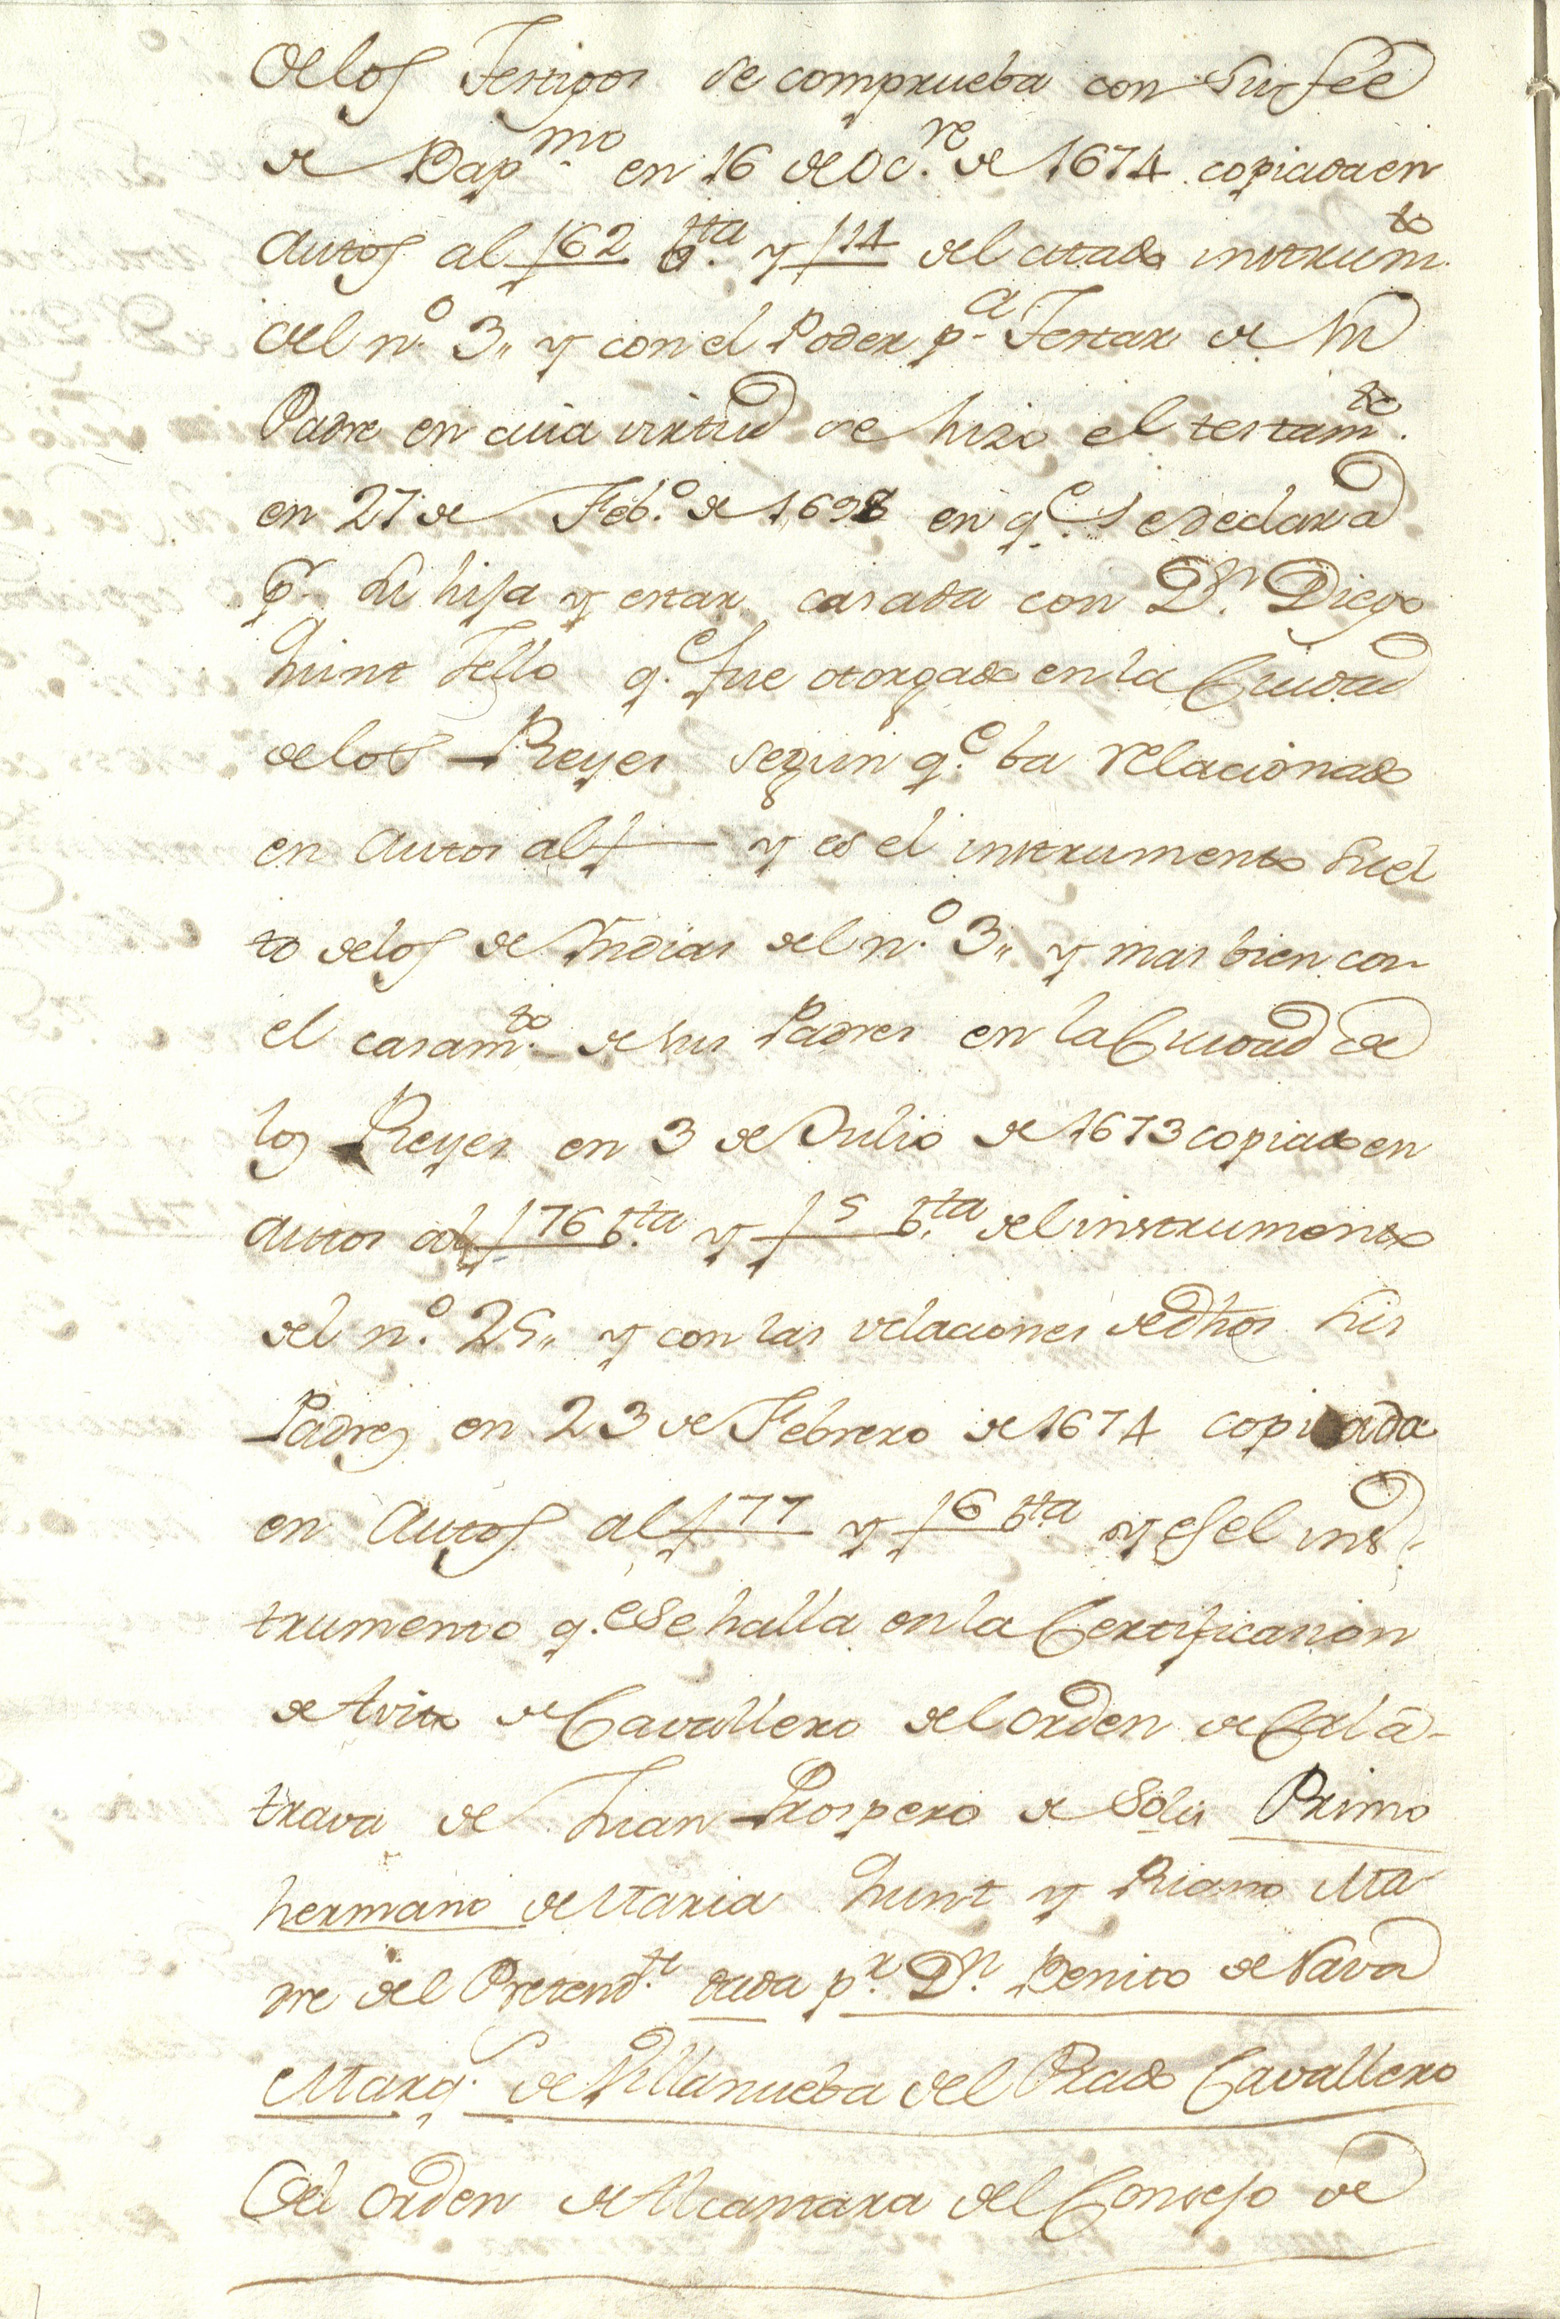 de los Testigos se comprueba con su fée
de Bap.mo en 16 de Oc.re de 1674 copiada en
autos al f 62 b.ta y f 14 del citado instrum.to
del n.o 3,, y con el Poder p.a Testar de su
Padre en cuia virtud se hizo el testam.to
en 27 de Feb.o de 1698 en q.e se declara
p.r su hija y estar casada con D.n Diego
hunt Tello q.e fue otorgado en la Ciudad
de los Reyes segun q.e ba relacionado
en autos al f — y es el instrumento suel
to de los de Indias del n.o 3,, y mas bien con
el casam.to de sus Padres en la Ciudad de
los Reyes en 3 de Julio de 1673 copiado en
autos al f 76 b.ta y f 5 b.ta del instrumento
del n.o 25,, y con las velaciones de dhos sus
Padres en 23 de Febrero de 1674 copiada
en autos al f 77 y f 6 b.ta y es el ins-
trumento q.e se halla en la Certificacion
de Avito de Cavallero del orden de Cala-
trava de Juan Prospero de Solis Primo
hermano de Maria hunt y Riano Ma
dre del Pretend.te dada p.r D.n Benito de Nava
Marq.s de Villanueba del Prado Cavallero
del orden de Alcantara del Consejo de